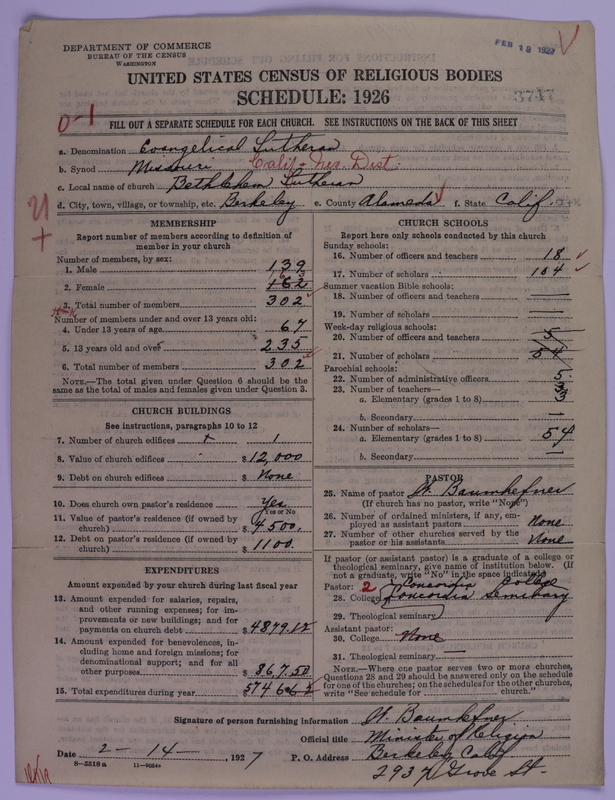 DEPARTMENT OF COMMERCE
BUREAU OF THE CENSUS
WASHINGTON
FEB 18 1927
UNITED STATES CENSUS OF RELIGIOUS BODIES
SCHEDULE: 1926
3747
0-1
FILL OUT A SEPARATE SCHEDULE FOR EACH CHURCH. SEE INSTRUCTIONS ON THE BACK OF THIS SHEET
a. Denomination Evangelical Lutheran
b. Synod Missouri Calif + Nev. Dist.
c. Local name of church Bethlehem Lutheran
d. City, town, village, or township, etc. Berkeley e. County Alameda f. State Calif.
MEMBERSHIP
Report number of members according to definition of member in your church
Number of members, by sex:
1. Male 139
2. Female
3. Total number of members 302
Number of members under and over 13 years old:
4. Under 13 years of age 67
5. 13 years old and over 235
6. Total number of members 302
NOTE.—The total given under Question 6 should be the same as the total of males and females given under Question 3.
CHURCH BUILDINGS
See instructions, paragraphs 10 to 12
7. Number of church edifices 1
8. Value of church edifices $ 12,000
9. Debt on church edifices $ None
10. Does church own pastor's residence Yes
Yes or No
11. Value of pastor's residence (if owned by church) $ 4500.
12. Debt on pastor's residence (if owned by church) $ 1100.
EXPENDITURES
Amount expended by your church during last fiscal year
13. Amount expended for salaries, repairs, and other running expenses; for improvements or new buildings; and for payments on church debt $ 4879.12
14. Amount expended for benevolences, including home and foreign missions; for denominational support; and for all other purposes $ 867.50
15. Total expenditures during year $ 5746.62
CHURCH SCHOOLS
Report here only schools conducted by this church
Sunday schools:
16. Number of officers and teachers 18
17. Number of scholars 104
Summer vacation Bible schools:
18. Number of officers and teachers —
19. Number of scholars —
Week-day religious schools:
20. Number of officers and teachers 5
21. Number of scholars 54
Parochial schools:
22. Number of administrative officers 5
23. Number of teachers—
a. Elementary (grades 1 to 8) 3
b. Secondary
24. Number of scholars—
a. Elementary (grades 1 to 8) 54
b. Secondary
PASTOR
25. Name of pastor W. Baumhefner
(If church has no pastor, write "None")
26. Number of ordained ministers, if any, employed as assistant pastors None
27. Number of other churches served by the pastor or his assistants None
If pastor (or assistant pastor) is a graduate of a college or theological seminary, give name of institution below. (If not a graduate, write "No" in the space indicated)
Pastor: 2 Concordia College
28. College Concordia Seminary
29. Theological seminary
Assistant pastor:
30. College None
31. Theological seminary —
NOTE.—Where one pastor serves two or more churches, Questions 28 and 29 should be answered only on the schedule for one of the churches; on the schedules for the other churches, write "See schedule for church."
Signature of person furnishing information W. Baumhefner
Official title Minister of Religion
Date 2 - 14 -, 1927 P. O. Address Berkeley Calif
2937 Grove St.
8-5518a 11-9084